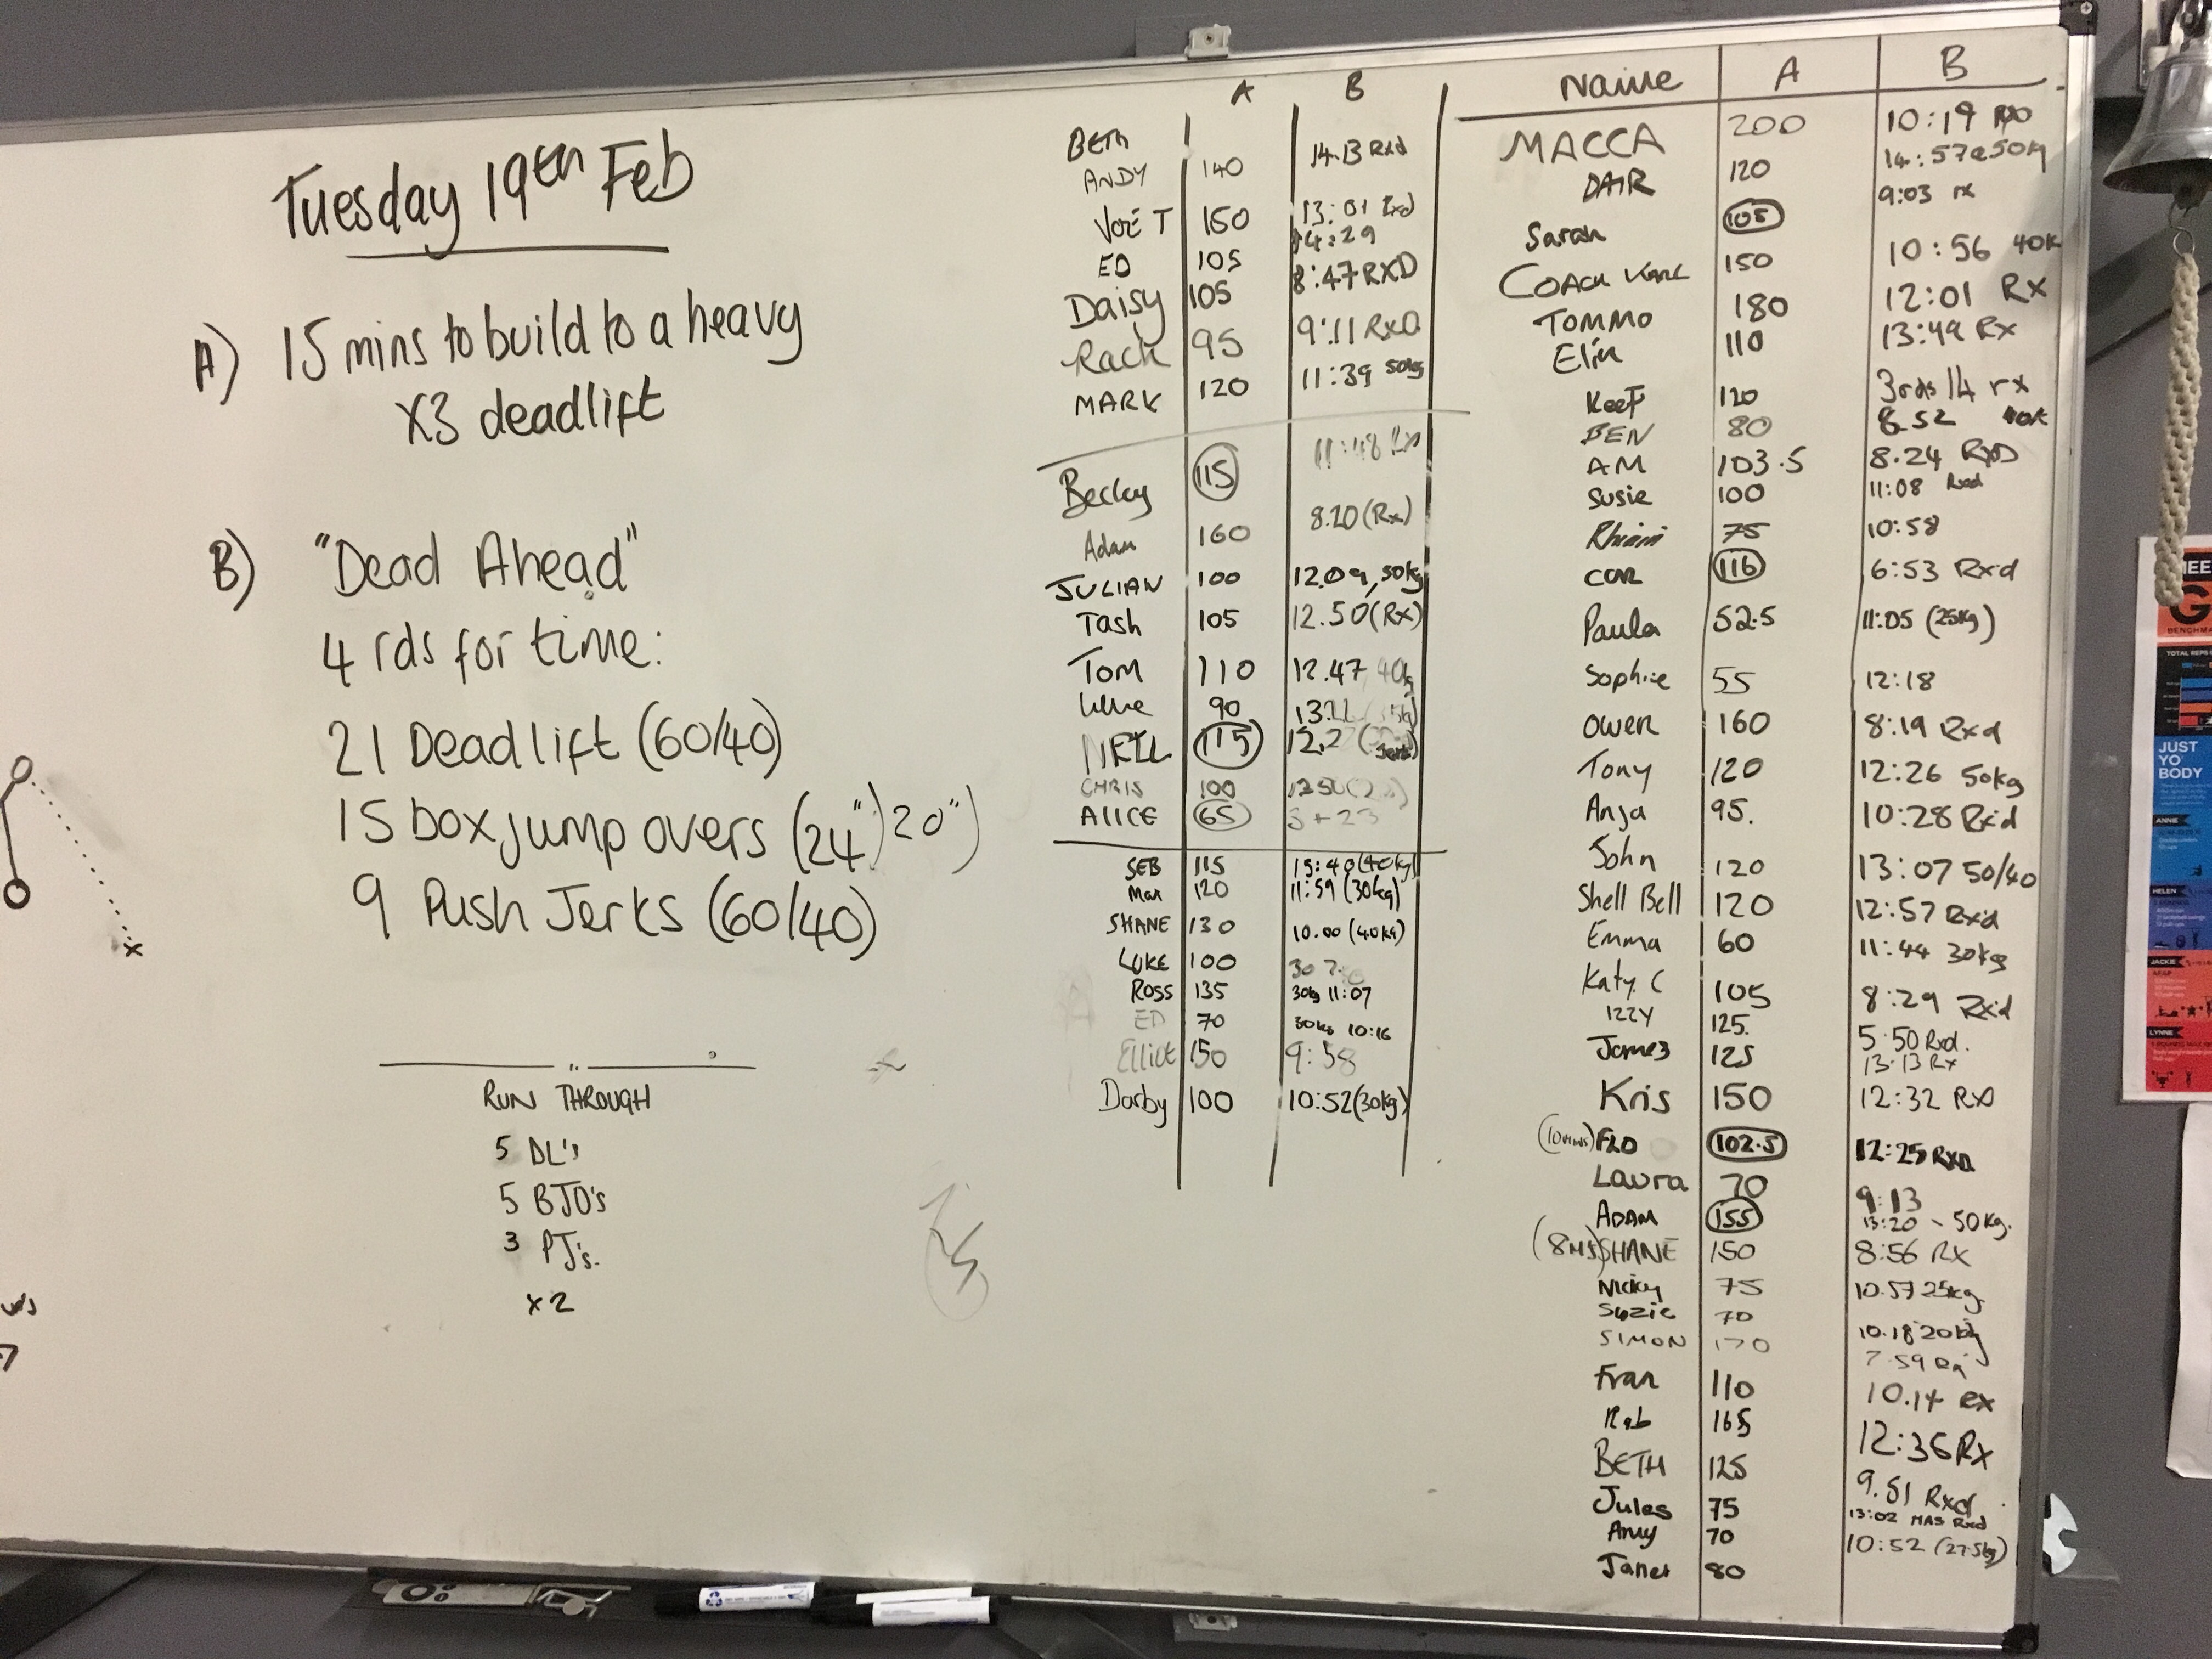 Tuesday 19th Feb
A) 15 mins to build to a heavy
x3 deadlift
B) "Dead Ahead"
4 rds for time:
21 Deadlift (60/40)
15 box jump overs (24")20")
9 Push Jerks (60/40)
RUN THROUGH
5 DL's
5 BJO's
3 PJ's.
x2
A B
BETH
ANDY 140 14.13 Rxd
150 13:01 Rxd
ED 105 14:29
Daisy 105 8:47 RXD
Rach 95 9:11 RXD
MARK 120 11:39 50kg
Becky 115 11:48 Rx
Adam 160 8.20 (Rx)
JULIAN 100 12.09, 50kg
Tash 105 12.50 (Rx)
Tom 110 12.47 40kg
90
NEIL 115
CHRIS 100
ALICE 65
SEB 115 15:40 (40kg)
Max 120 11:59 (30kg)
SHANE 130 10.00 (40kg)
LUKE 100
ROSS 135 30kg 11:07
ED 70 30kg 10:16
Elliot 150 9:58
Darby 100 10:52 (30kg)
Name A B
MACCA 200 10:19 RXD
DAIR 120 14:57 @ 50kg
Sarah 105 9:03 rx
COACH KARL 150 10:56 40K
TOMMO 180 12:01 RX
Elin 110 13:49 Rx
Keef 120 3rds 14 rx
BEN 80 8.52 40K
AM 103.5 8.24 RXD
Susie 100 11:08 Rxd
75 10:58
116 6:53 Rxd
Paula 52.5 11:05 (25kg)
Sophie 55 12:18
Owen 160 8:19 Rxd
Tony 120 12:26 50kg
Anja 95. 10:28 Rx'd
John 120 13:07 50/40
Shell Bell 120 12:57 Rx'd
Emma 60 11:44 30kg
Katy C 105 8:29 Rx'd
IZZY 125.
James 125 5:50 Rxd.
13:13 Rx
Kris 150 12:32 RXD
FLO 102.5 12:25 RXD
Laura 70 9:13
ADAM 155 13:20 - 50kg.
SHANE 150 8:56 RX
Nicky 75 10.57 25kg.
Suzie 70 10.18 20kg
SIMON
Fran 110 10.14 RX
Rab 165
BETH 125 12:36 Rx
Jules 75 9.51 Rxd
Amy 70 13:02 MAS Rxd
Janet 80 10:52 (27.5kg)
BENCHMA
TOTAL REPS
JUST
YO
BODY
ANNIE
HELEN
JACKIE
LYNNE